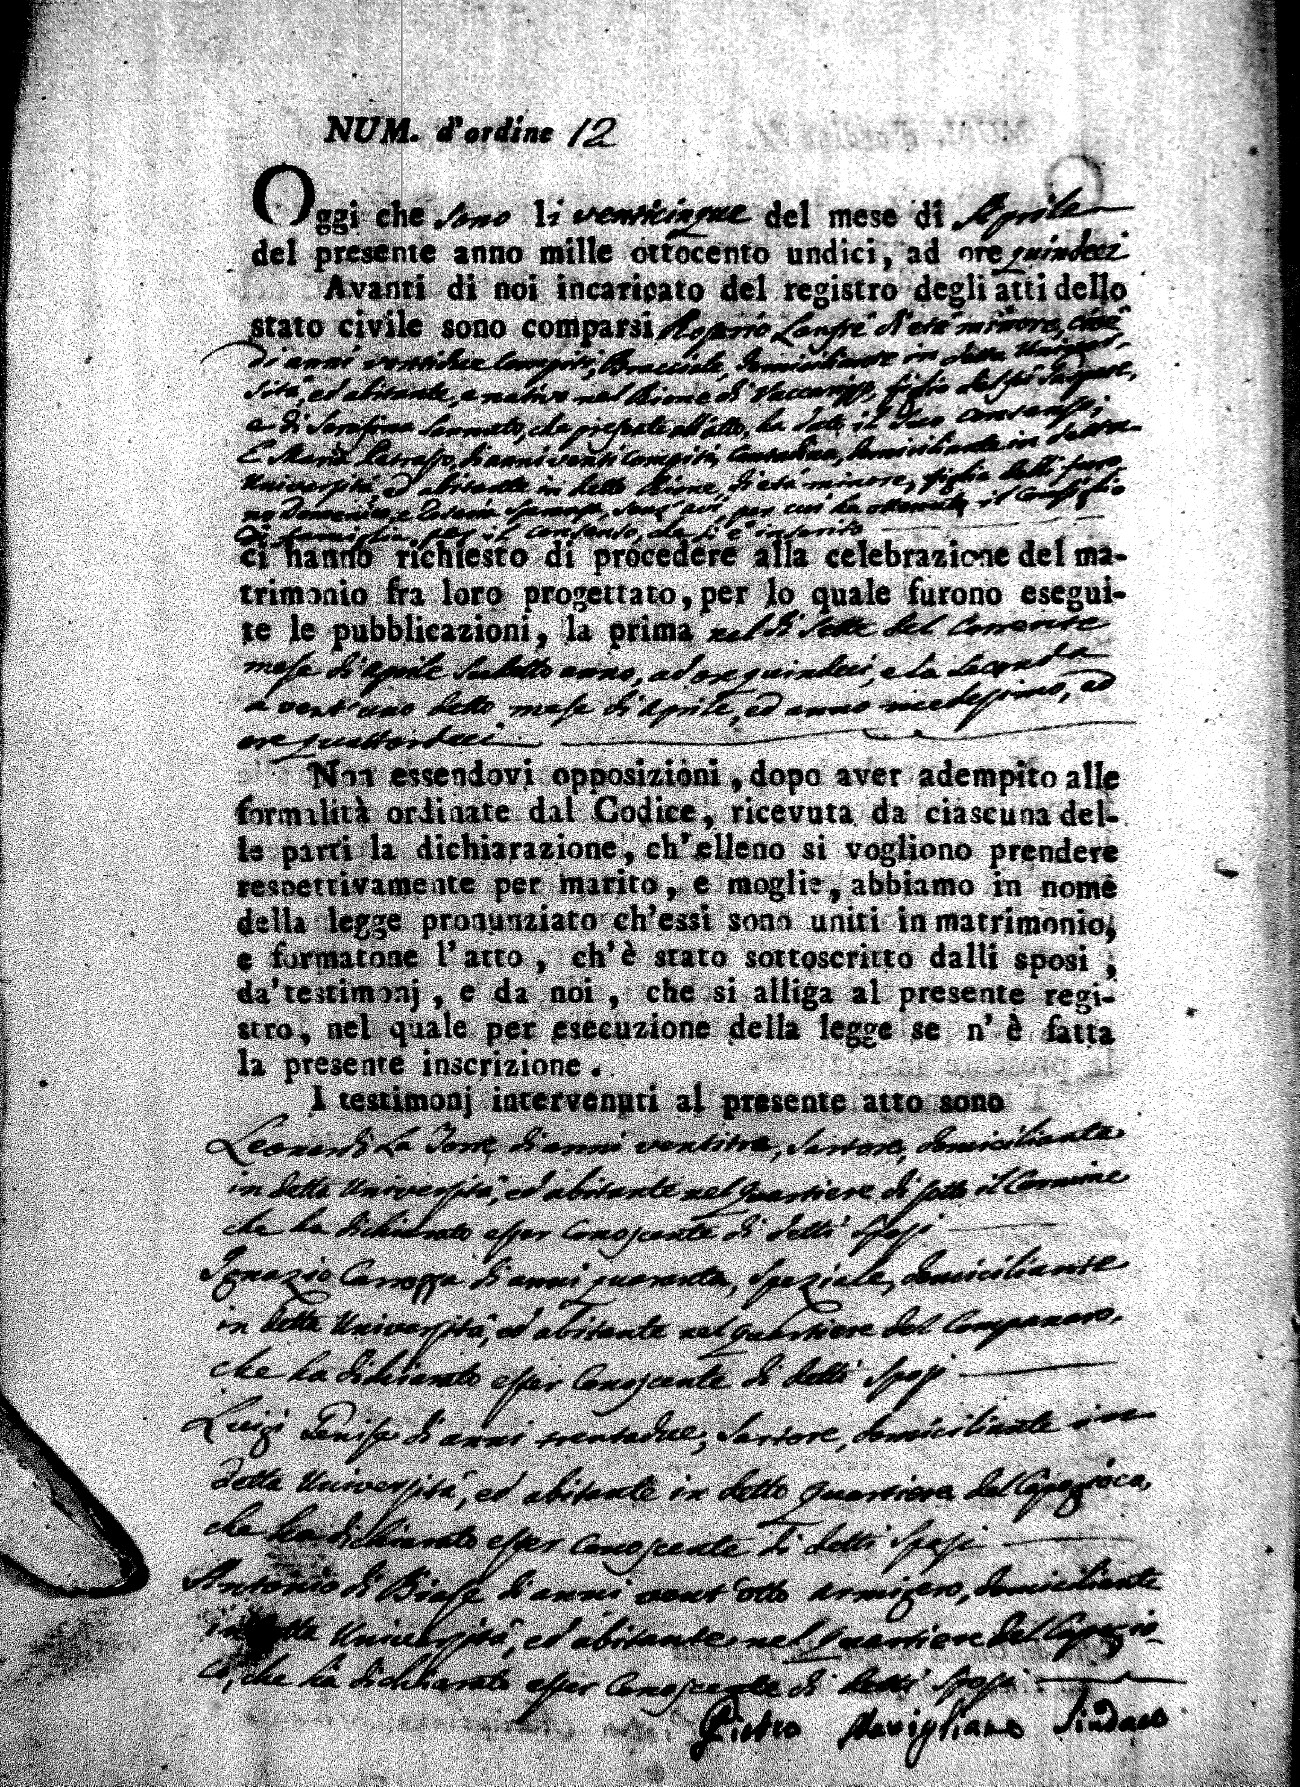 NUM. d'ordine 12
Oggi che sono li venticinque del mese di Aprile
del presente anno mille ottocento undici, ad ore quindeci
Avanti di noi incaricato del registro degli atti dello
stato civile sono comparsi Rosario d'età minore, cioè
di anni ventidue compiti, Bracciale, domiciliante in detta Univer-
sità, ed abitante, e nativo nel Rione di Vaccarizzo, figlio del fù
e di Serafina che presente all'atto, ha dato il suo consenso;
E Maria di anni venti compiti, Contadina, domiciliante in detta
Università, ed abitante in detto Rione, di età minore, figlia delli furo-
no Domenico, e per cui ha ottenuto il Consiglio
di famiglia per il consenso, che si è inserito
ci hanno richiesto di procedere alla celebrazione del ma-
trimonio fra loro progettato, per lo quale furono esegui-
te le pubblicazioni, la prima nel dì sette del Corrente
mese di Aprile sudetto anno, ad ore quindeci, e la seconda
a vent'uno detto mese di Aprile, ed anno medesimo, ad
ore quattordeci
Non essendovi opposizioni, dopo aver adempito alle
formalità ordinate dal Codice, ricevuta da ciascuna del-
le parti la dichiarazione, ch'elleno si vogliono prendere
respettivamente per marito, e moglie, abbiamo in nome
della legge pronunziato ch'essi sono uniti in matrimonio,
e formatone l'atto, ch'è stato sottoscritto dalli sposi,
da'testimonj, e da noi, che si alliga al presente regi-
stro, nel quale per esecuzione della legge se n'è fatta
la presente inscrizione.
I testimonj intervenuti al presente atto sono
Leonardi La Torre di anni ventitre, Sartore, domiciliante
in detta Università, ed abitante nel quartiere di sotto il Carmine
che ha dichiarato esser conoscente di detti Sposi
Ignazio Carrozza di anni quaranta, Speziale, domiciliante
in detta Università, ed abitante nel quartiere del Campanaro,
che ha dichiarato esser Conoscente di detti Sposi
Luigi di anni trentadue, Sartore, domiciliante in
detta Università, ed abitante in detto quartiere del
che ha dichiarato esser Conoscente di detti Sposi
Antonio di Biase di anni vent'otto armigero, domiciliante
in detta Università, ed abitante nel quartiere del
che ha dichiarato esser Conoscente di detti Sposi
Pietro Mavigliano Sindaco